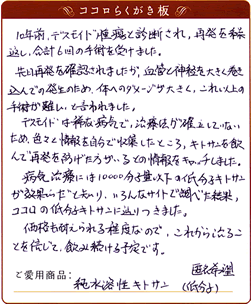 ココロらくがき板
10年前、デスモイド腫瘍と診断され、再発を繰
返し、合計6回の手術を受けました。
先日再発を確認されましたが、血管と神経を大きく巻き
込んでの発生のため、体へのダメージが大きく、これ以上の
手術が難しいと言われました。
デスモイドは稀な病気で、治療法が確立していない
ため、色々と情報を自分で収集したところ、キトサンを飲ん
で再発を防げた方がいるとの情報をキャッチしました。
病気治療には10000分子量以下の低分子キトサン
が効果的だと知り、いろんなサイトで調べた結果、
ココロの低分子キトサンに辿りつきました。
価格も耐えられる程度なので、これから治るこ
とを信じて、飲み続ける予定です。
匿名希望
ご愛用商品:
純水溶性キトサン(低分子)